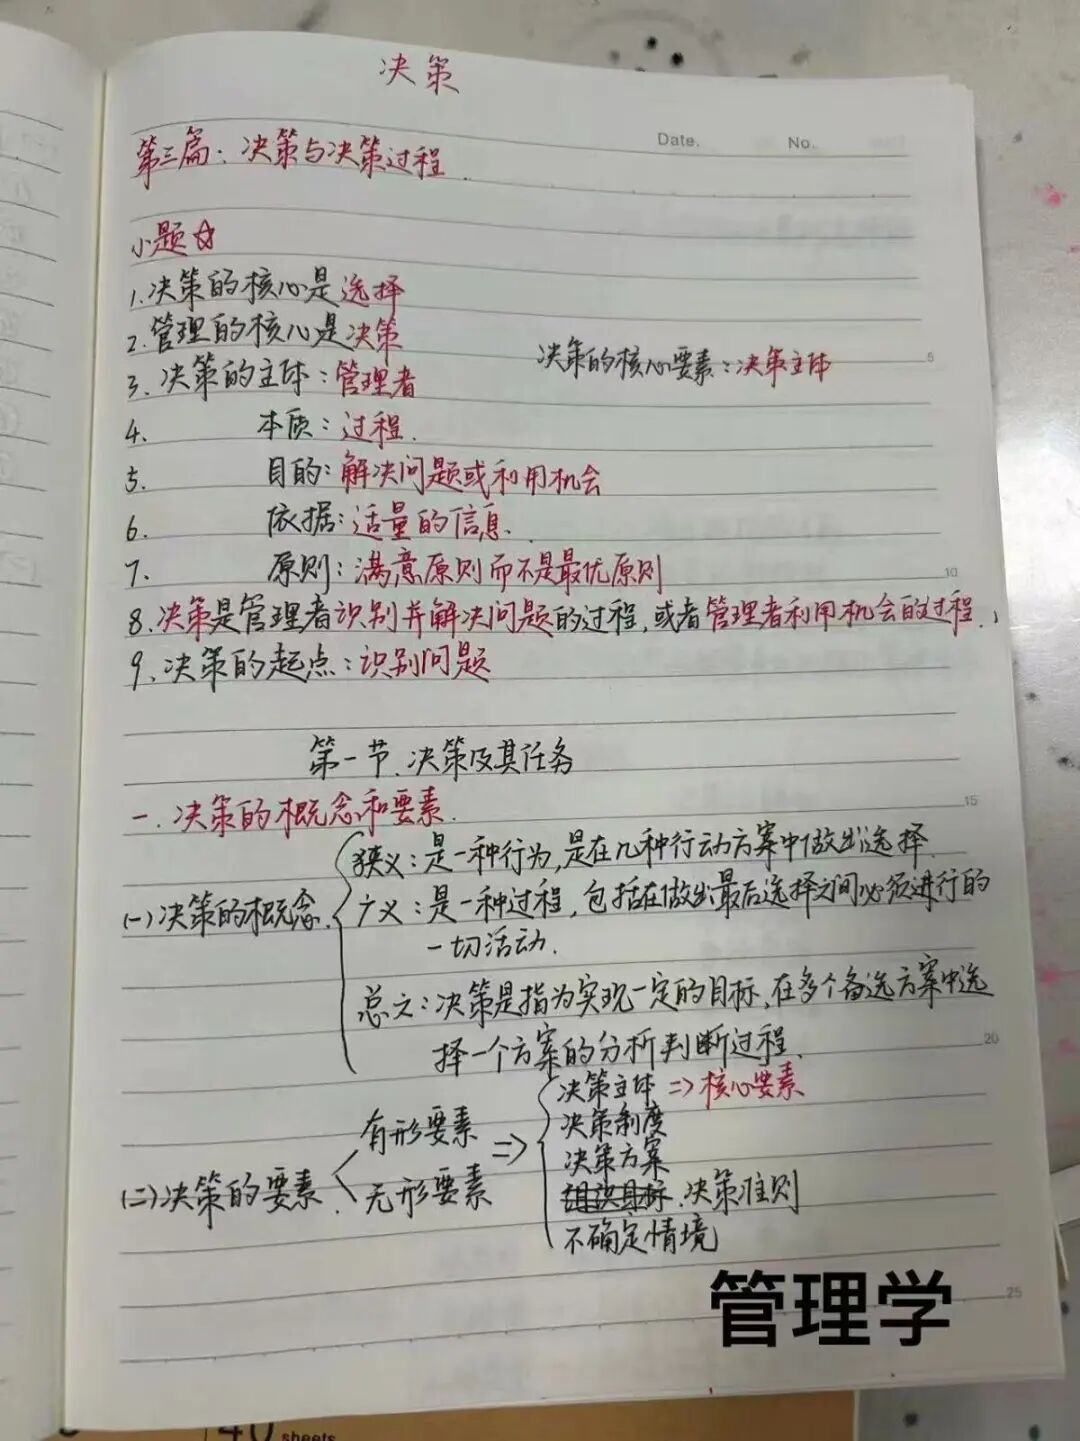 决策
Date. No.
第三篇：决策与决策过程.
小题☆
1.决策的核心是选择
2.管理的核心是决策
决策的核心要素：决策主体
3、决策的主体：管理者
4、本质：过程.
5、目的：解决问题或利用机会
6、依据：适量的信息.
7、原则：满意原则而不是最优原则
8、决策是管理者识别并解决问题的过程，或者管理者利用机会的过程.
9、决策的起点：识别问题
第一节.决策及其任务
一.决策的概念和要素.
狭义：是一种行为，是在几种行动方案中做出选择.
(一)决策的概念.
广义：是一种过程，包括在做出最后选择之间必须进行的
一切活动.
总之：决策是指为实现一定的目标，在多个备选方案中选
择一个方案的分析判断过程.
决策主体 => 核心要素
有形要素 =>
决策制度
决策方案
(二)决策的要素.
无形要素
组织目标.决策准则
不确定情境
管理学
5
10
15
20
25
40 sheets